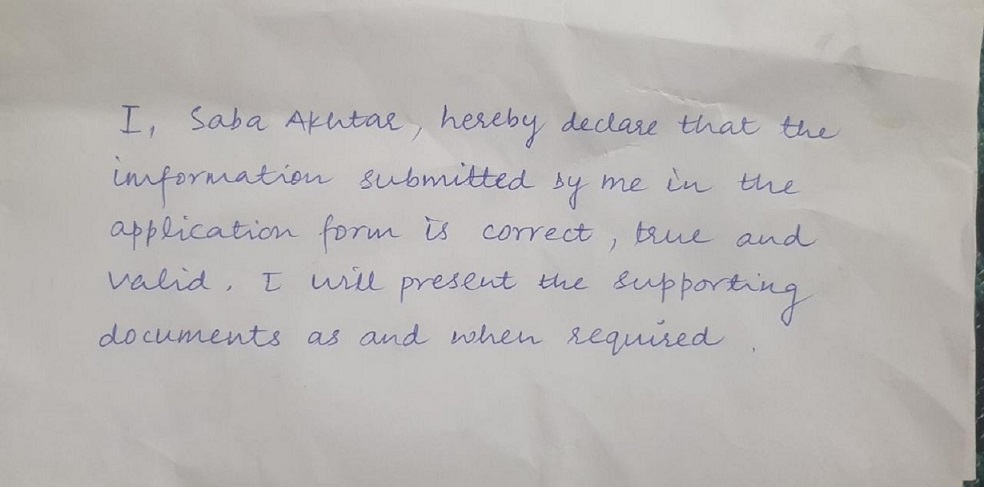 I, Saba Akhtar, hereby declare that the
information submitted by me in the
application form is correct, true and
valid. I will present the supporting
documents as and when required.